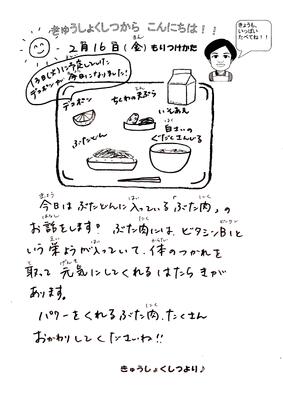 きゅうしょくしつから こんにちは！！
きょうも、
いっぱい
たべてね！！
2月16日(金)もりつけかた
13日(火)に予定していた
デコポンが
今日になりました！
デコポン
ちくわのまぶら
いそあえ
ぶたどん
白玉いり
ぐだくさんじる
今日は ぶたどんに 入っている「ぶた肉」の
お話をします。 ぶた肉には、ビタミンB1と
いう栄ようが入っていて、体のつかれを
取って 元気にしてくれるはたらきが
あります。
パワーをくれるぶた肉、たくさん
おかわりしてくださいね!!
きゅうしょくしつより♪